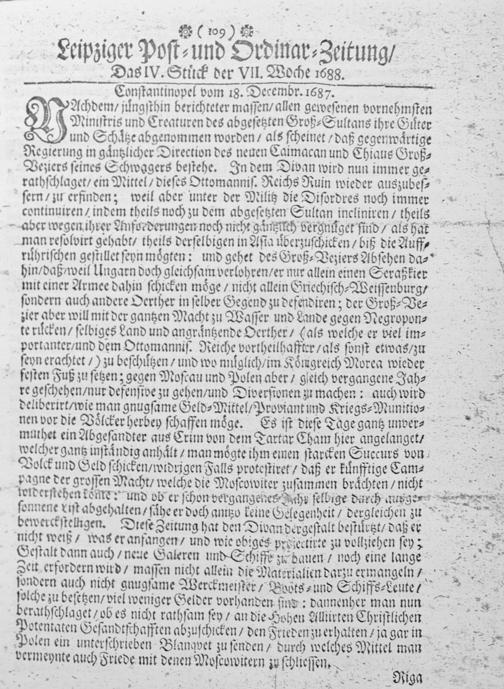 ( 109 )
Leipziger Post- und Ordinar-Zeitung/
Das IV. Stück der VII. Woche 1688.
Constantinopel vom 18. Decembr. 1687.
NAchdem/ jüngsthin berichteter massen/ allen gewesenen vornehmsten
Ministris und Creaturen des abgesetzten Groß-Sultans ihre Güter
und Schätze abgenommen worden/ als scheinet/ daß gegenwärtige
Regierung in gäntzlicher Direction des neuen Caimacan und Chiaus Groß-
Veziers seines Schwagers bestehe. In dem Divan wird nun immer ge-
rathschlaget/ ein Mittel/ dieses Ottomannis. Reichs Ruin wieder auszubes-
sern/ zu erfinden; weil aber unter der Militz die Disordres noch immer
continuiren/ indem theils noch zu dem abgesetzten Sultan incliniren/ theils
aber wegen ihrer Anforderungen noch nicht gäntzlich vergnüget sind/ als hat
man resolvirt gehabt/ theils derselbigen in Asia überzuschicken/ biß die Auff-
rührischen gestillet seyn mögten: und gehet des Groß-Veziers Absehen da-
hin/ daß/ weil Ungarn doch gleichsam verlohren/ er nur allein einen Seraßkier
mit einer Armee dahin schicken möge/ nicht allein Griechisch-Weissenburg/
sondern auch andere Oerther in selber Gegend zu defendiren; der Groß-Ve-
zier aber will mit der gantzen Macht zu Wasser und Lande gegen Negropon-
te rücken/ selbiges Land und angräntzende Oerther/ (als welche er viel im-
portanter/ und dem Ottomannis. Reiche vortheilhaffter/ als sonst etwas/ zu
seyn erachtet/) zu beschützen/ und wo müglich/ im Königreich Morea wieder
festen Fuß zu setzen; gegen Moscau und Polen aber/ gleich vergangene Jah-
re geschehen/ nur defensive zu gehen/ und Diversionen zu machen: auch wird
deliberirt/ wie man gnugsame Geld-Mittel/ Proviant und Kriegs-Munitio-
nen vor die Völcker herbey schaffen möge. Es ist diese Tage gantz unver-
muthet ein Abgesandter aus Crim von dem Tartar Cham hier angelanget/
welcher gantz inständig anhält/ man mögte ihm einen starcken Succurs von
Volck und Geld schicken/ widrigen Falls protestiret/ daß er künfftige Cam-
pagne der grossen Macht/ welche die Moscowiter zusammen brächten/ nicht
widerstehen könte: und ob er schon vergangenes Jahr selbige durch
sonnene List abgehalten/ sähe er doch anitzo keine Gelegenheit/ dergleichen zu
bewerckstelligen. Diese Zeitung hat den Divan dergestalt bestürtzt/ daß er
nicht weiß/ was er anfangen/ und wie obiges projectirte zu vollziehen sey;
Gestalt dann auch/ neue Galeren und Schiffe zu bauen/ noch eine lange
Zeit erfordern wird/ massen nicht allein die Materialien darzu ermangeln/
sondern auch nicht gnugsame Werckmeister/ Boots- und Schiffs-Leute/
solche zu besetzen/ viel weniger Gelder vorhanden sind: dannenher man nun
berathschlaget/ ob es nicht rathsam sey/ an die Hohen Alliirten Christlichen
Potentaten Gesandtschafften abzuschicken/ den Frieden zu erhalten/ ja gar in
Polen ein unterschrieben Blanqvet zu senden/ durch welches Mittel man
vermeynte auch Friede mit denen Moscowitern zu schliessen.
Riga